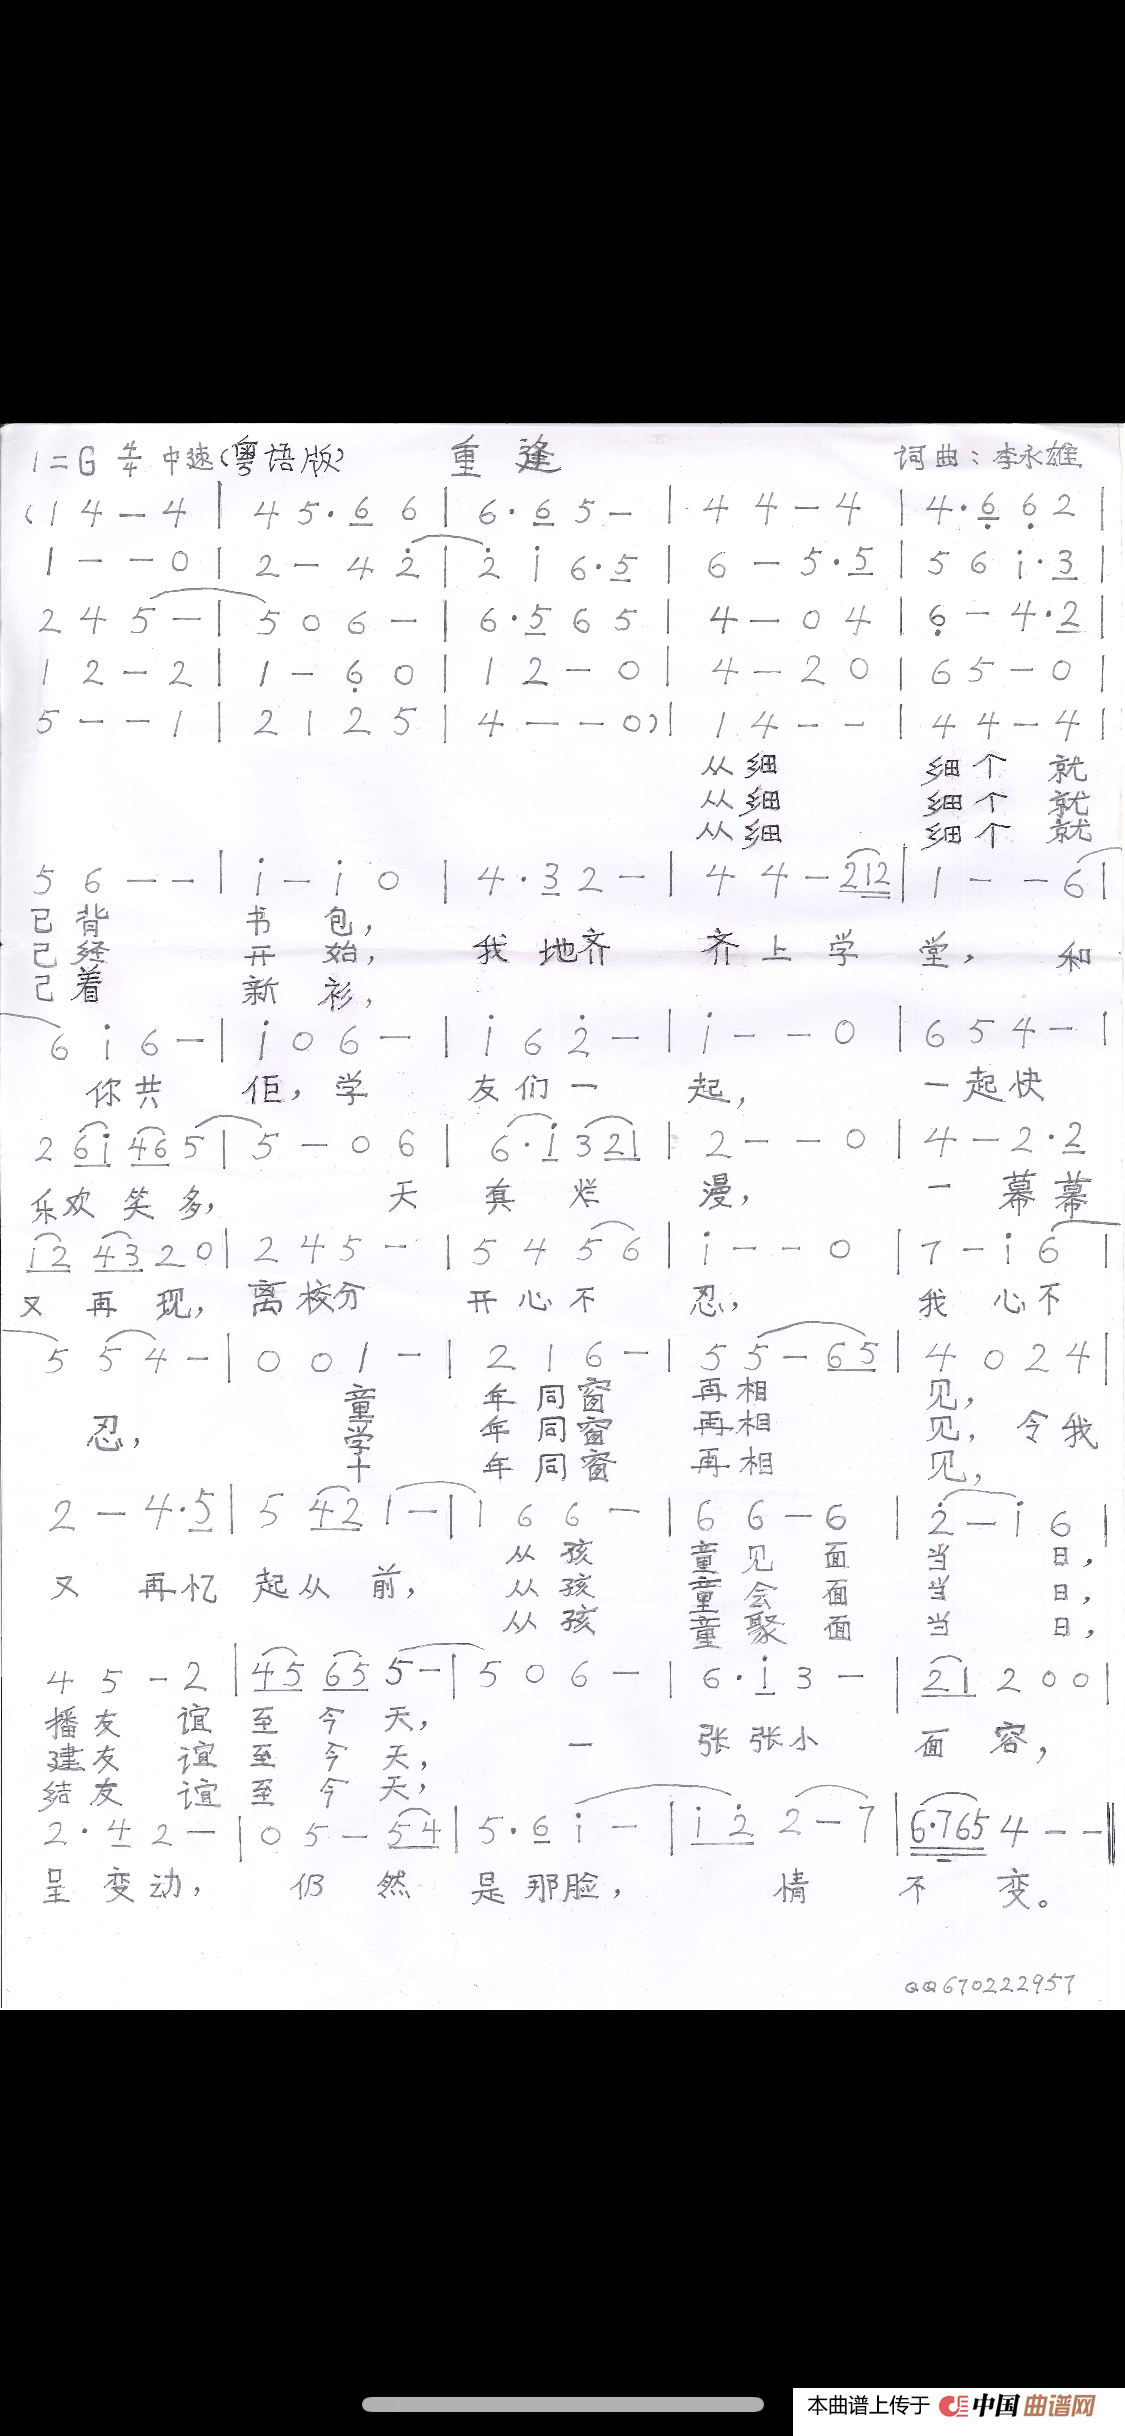 1=G 4/4 中速(粤语版) 重逢 词曲：李永雄
(1 4 - 4 | 4 5 · 6 6 | 6 · 6 5 - | 4 4 - 4 | 4 · 6 6 2 |
1 - - 0 | 2 - 4 2 | 2 1 6 · 5 | 6 - 5 · 5 | 5 6 i · 3 |
2 4 5 - | 5 0 6 - | 6 · 5 6 5 | 4 - 0 4 | 6 - 4 · 2 |
1 2 - 2 | 1 - 6 0 | 1 2 - 0 | 4 - 2 0 | 6 5 - 0 |
5 - - 1 | 2 1 2 5 | 4 - - 0) | 1 4 - - | 4 4 - 4 |
从细 细个 就
从细 细个 就
从细 细个 就
5 6 - - | i - i 0 | 4 · 3 2 - | 4 4 - 212 | 1 - - 6 |
已背 书包，
已经 开始， 我地齐 齐上学 堂， 和
已着 新衫，
6 i 6 - | i 0 6 - | i 6 2 - | i - - 0 | 6 5 4 - |
你共 佢，学 友们一 起， 一起快
2 6i 46 5 | 5 - 0 6 | 6 · i 3 21 | 2 - - 0 | 4 - 2 · 2
乐欢笑多， 天 真烂 漫， 一幕幕
i2 43 2 0 | 2 4 5 - | 5 4 5 6 | i - - 0 | 7 - i 6 |
又再现， 离校分 开心不 忍， 我心不
5 5 4 - | 0 0 1 - | 2 1 6 - | 5 5 - 65 | 4 0 2 4 |
童 年同窗 再相 见，
忍， 学 年同窗 再相 见，令我
十 年同窗 再相 见，
2 - 4 · 5 | 5 42 1 - | 1 6 6 - | 6 6 - 6 | 2 - i 6 |
从孩 童见面 当日，
又再忆 起从前， 从孩 童会面 当日，
从孩 童聚面 当日，
4 5 - 2 | 45 65 5 - | 5 0 6 - | 6 · i 3 - | 21 2 0 0 |
播友谊 至今天，
建友谊 至今天， 一 张张小 面容，
结友谊 至今天，
2 · 4 2 - | 0 5 - 54 | 5 · 6 i - | i 2 2 - 7 | 6·765 4 - - ‖
呈变动， 仍然 是那脸， 情 不变。
QQ670222957
本曲谱上传于 中国曲谱网